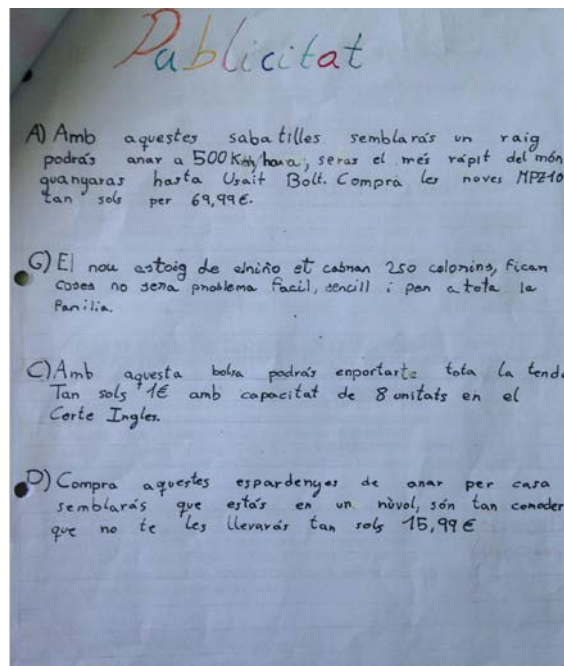 Publicitat
A) Amb aquestes sabatilles semblarás un raig
podrás anar a 500 Km/hora, seras el més rápit del món
guanyaras hasta Usait Bolt. Compra les noves MPZ10
tan sols per 69,99€.
G) El nou estoig de elniño et cabran 250 colorins, ficar
coses no sera problema facil, sencill i per a tota la
familia.
C) Amb aquesta bolsa podrás enportarte tota la tenda
Tan sols 1€ amb capacitat de 8 unitats en el
Corte Ingles.
D) Compra aquestes espardenyes de anar per casa
semblarás que estás en un núvol, són tan comoder
que no te les llevarás tan sols 15,99€